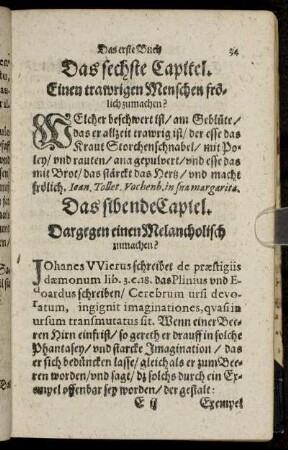 Das erste Buch 34
Das sechste Capitel.
Einen trawrigen Menschen frö-
lich zumachen?
WElcher beschwert ist/ am Geblüte/
das er allzeit trawrig ist/ der esse das
Kraut Storchenschnabel/ mit Po-
ley/ vnd rauten/ ana gepulvert/ vnd esse das
mit Brot/ das stärckt das Hertz/ vnd macht
frölich. Ioan, Tollet. Vochenb, in sua margarita.
Das sibende Capiel.
Dargegen einen Melancholisch
zumachen?
IOhanes VVierus schreibet de præstigiis
dæmonum lib. 3. c. 18. das Plinius vnd E-
doardus schreiben/ Cerebrum ursi devo-
ratum, ingignit imaginationes, quasi in
ursum transmutatus sit. Wenn einer Bee-
ren Hirn einfrist/ so gereht er drauff in solche
Phantasey/ vnd starcke Imagination/ das
er sich bedüncken lasse/ gleich als er zum Bee-
ren worden/ vnd sagt/ dz solchs durch ein Ex-
empel offenbar sey worden/ der gestalt:
E ij Exempel